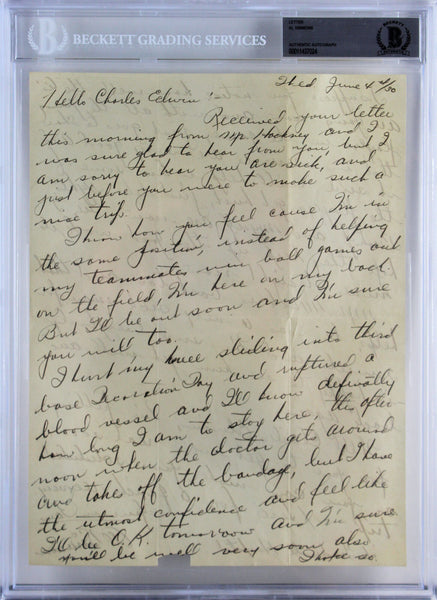 BECKETT GRADING SERVICES
LETTER
AL SIMMONS
AUTHENTIC AUTOGRAPH
BECKETT
Wed June 4 - 30
Hello Charles Edwin :-
Received your letter
this morning from Mr. Hackney and I
was sure glad to hear from you, but I
am sorry to hear you are sick, and
just before you were to make such a
nice trip.
I know how you feel cause I'm in
the same position, instead of helping
my teammates win ball games out
on the field, I'm here on my back.
But I'll be out soon and I'm sure
you will too.
I hurt my knee sliding into third
base Decoration Day and ruptured a
blood vessel and I'll know definitely
how long I am to stay here, this after-
noon when the doctor gets around
and takes off the bandage, but I have
the utmost confidence and feel like
I'll be O.K. tomorrow and I'm sure
you'll be well very soon also
I hope so.